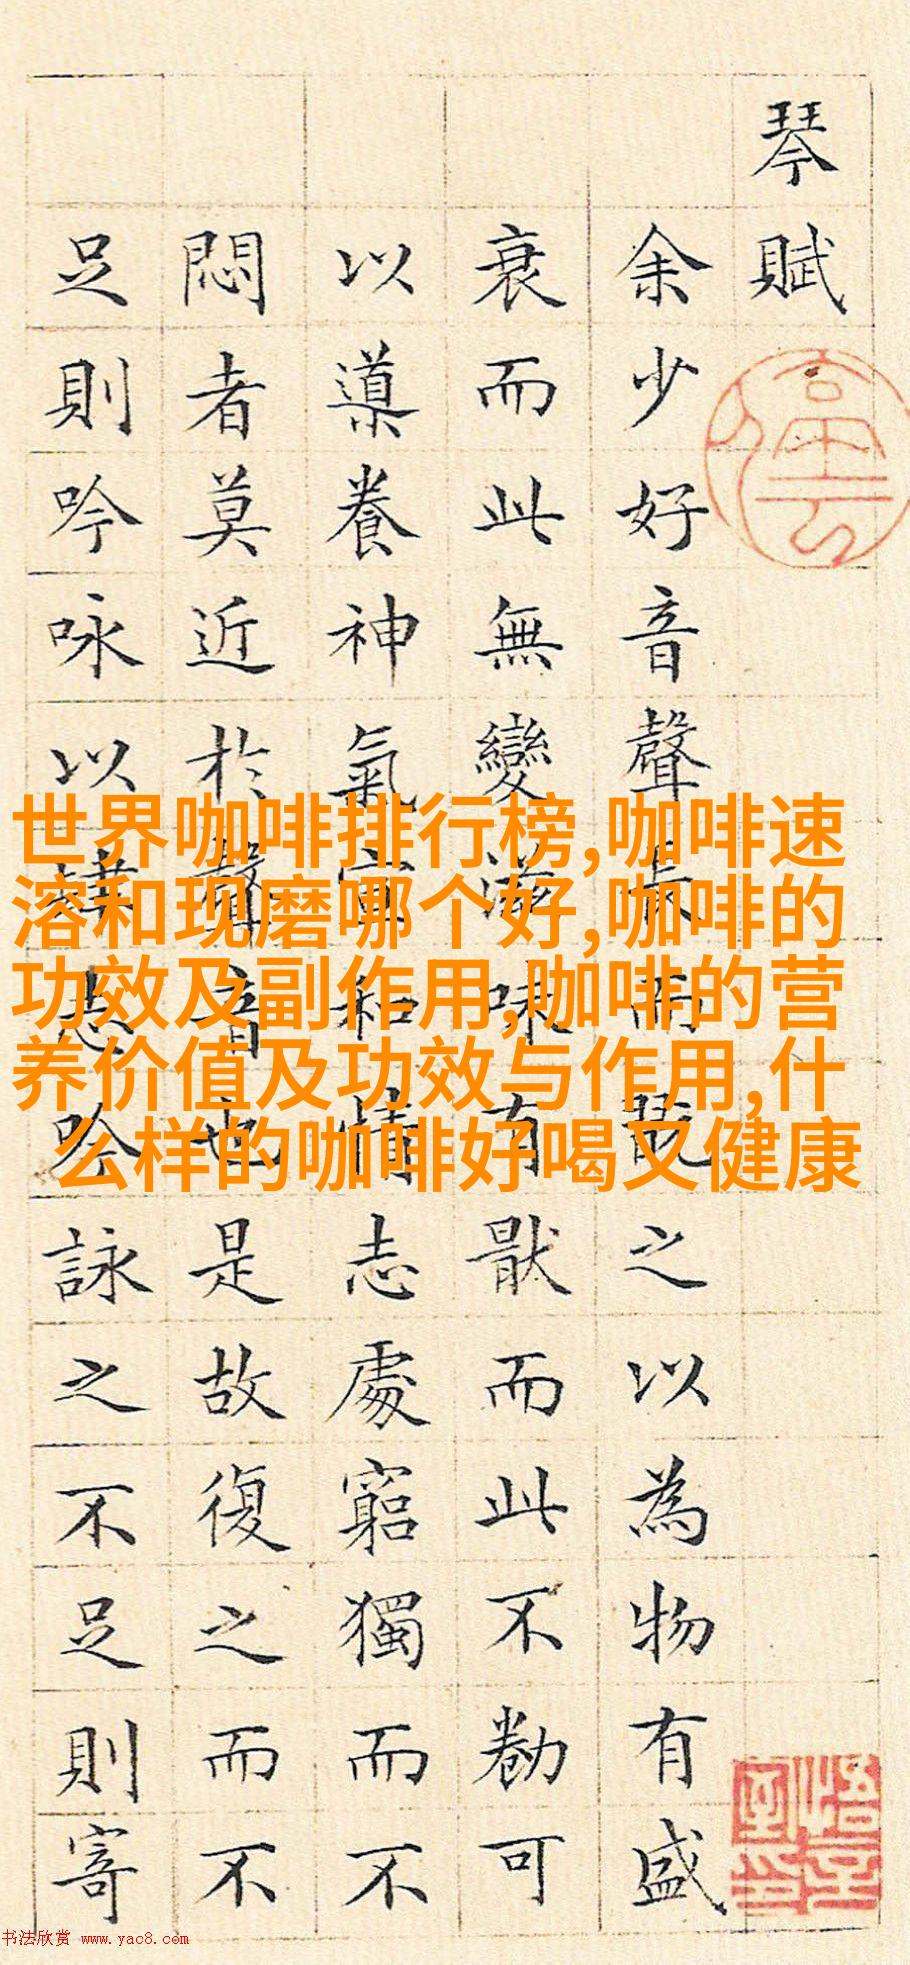 琴賦
余少好音聲長而翫之以為物有盛
衰而此無變滋味有猒而此不勌可
以導養神氣宣和情志處窮獨而不
悶者莫近於聲音也是故復之而不
足則吟咏以志吟詠之不足則寄
世界咖啡排行榜,咖啡速
溶和现磨哪个好,咖啡的
功效及副作用,咖啡的营
养价值及功效与作用,什
么样的咖啡好喝又健康
书法欣赏 www.yac8.com